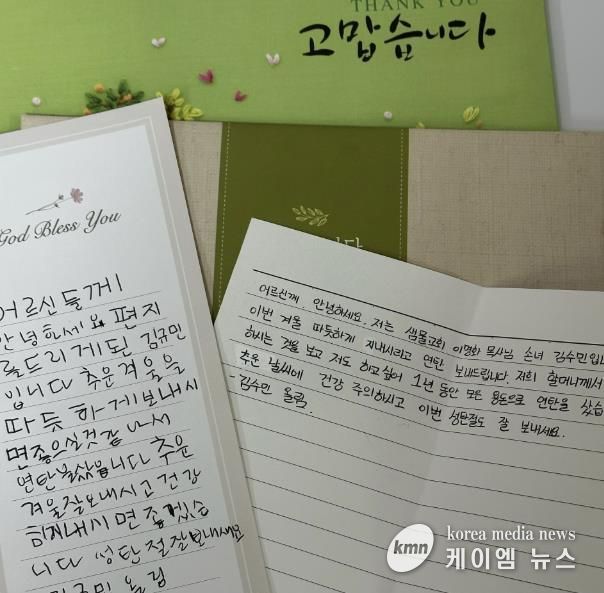 THANK YOU
고맙습니다
God Bless You
어르신들께
안녕하세요 편지
를드리게된 김규민
입니다 추운겨울을
따듯하게보내시
면좋으실것같아서
연탄불샀읍니다 추운
겨울잘보내시고 건강
히지내시면 좋겠습
니다 성탄절잘보내세요
김규민 올림
어르신께 안녕하세요. 저는 샘물교회 이명화 목사님 손녀 김수민입니
이번 겨울 따듯하게 지내시라고 연탄 보내드립니다. 저희 할머니께서
하시는 것을 보고 저도 하고싶어 1년 동안 모은 용돈으로 연탄을 샀습
추운 날씨에 건강 주의하시고 이번 성탄절도 잘 보내세요.
- 김수민 올림.
kmn
korea media news
케이엠 뉴스